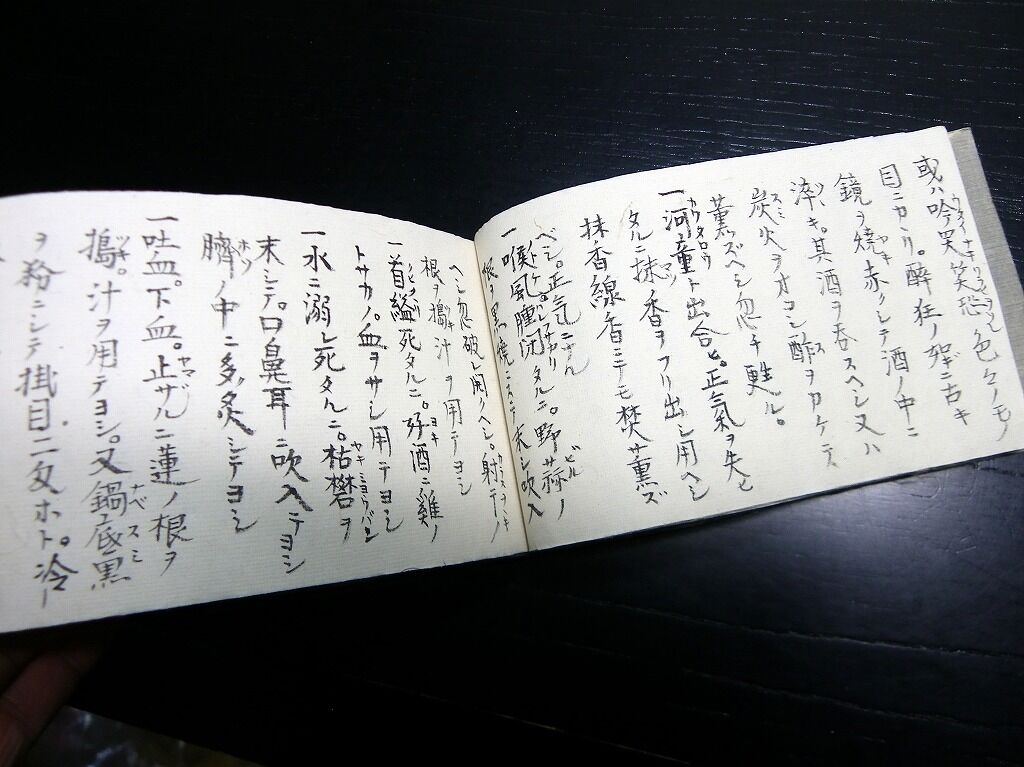 或ハ吟笑笑恐色々ノモノ
目ニカカリ。酔狂ノ如キニ古キ
鏡ヲ焼赤クシテ酒ノ中ニ
淬キ。其酒ヲ呑スヘシ又ハ
炭火ヲオコシ酢ヲカケテ
薫ズヘシ忽チ甦ル。
一河童ト出合ヒ正氣ヲ失ヒ
タルニ抹香ヲフリ出シ用ヘシ
抹香線香ニテモ焚サ薫ズ
ベシ。正気ニナル
一喉風腫閉タルニ。野蒜ノ
根ヲ黒焼ニシテ末シ吹入
ヘシ忽破レ開クヘシ。射干ノ
根ヲ搗汁ヲ用テヨシ
一首縊死タルニ。好酒ニ雞ノ
トサカノ血ヲサシ用テヨシ
一水ニ溺レ死タルニ。枯礬ヲ
末シテ。口鼻耳ニ吹入テヨシ
臍ノ中ニ多ク灸シテヨシ
一吐血。下血。止ザルニ蓮ノ根ヲ
搗。汁ヲ用テヨシ。又鍋底黒
ヲ粉ニシテ掛目二匁ホト。冷